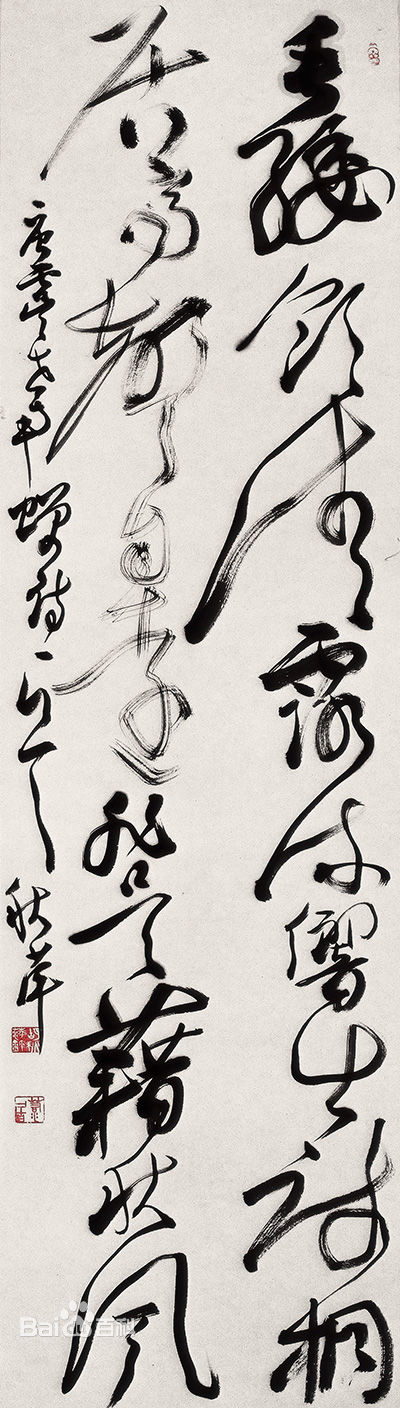 垂緌飲清露流響出疏桐
居高聲自遠非是藉秋風
唐虞世南蟬詩一首 秋
Bai 百科